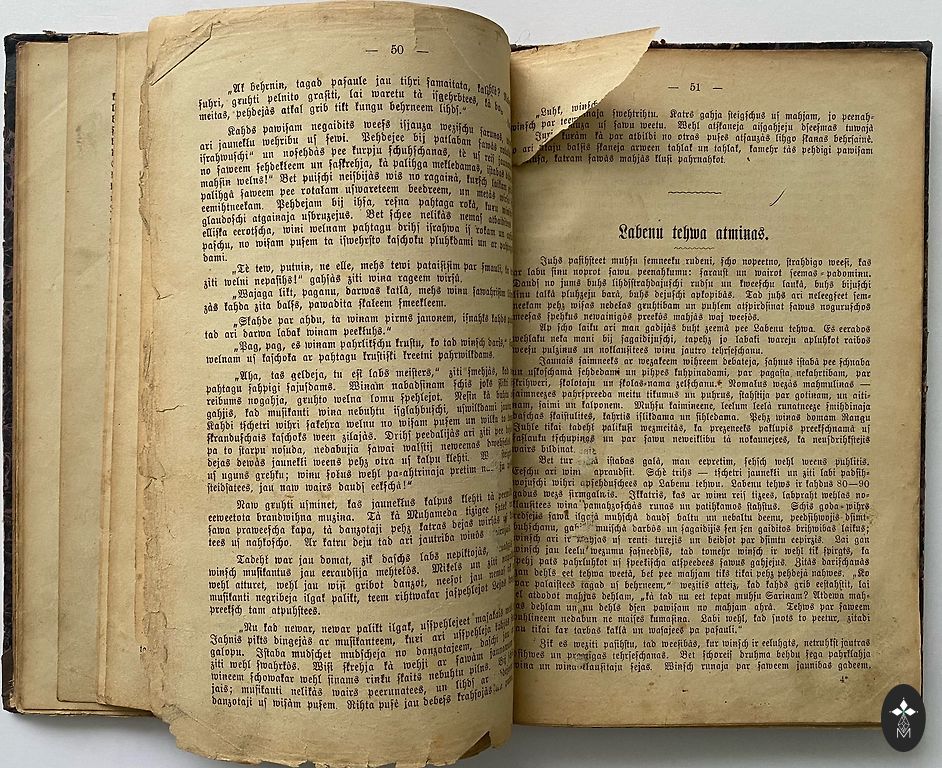 — 50 —
„Ak behrnin, tagad paſaule jau tihri ſamaitata,
ſuhri, gruhti pelnito graſiti, lai waretu tà iſgehrbtees, kà
meitas, pehdejàs atkal grib tikt kungu behrneem lihdſ.“
Kahds pawiſam negaidits weeſs iſjauza weziſchu
ari jauneklu wehribu uſ ſewi. Pehdejee bij patlaban ſawàs
iſrahwuſchi“ un noſehdàs pee kurpju ſchuhſchanas, tè uſ reiſ
no ſaweem ſehdekleem un ſaſkrehja, kà palihga mekledamas,
mahſin welns!“ Bet puiſchi neiſbijàs wis no ragainà, kurſch
palihgà ſaweem pee rotakam uſwareteem beedreem, un metàs
eemihtneekam. Pehdejam bij ihſa, reſna pahtaga rokà, kuru
glaudoſchi atgainaja uſbruzejus. Bet ſchee nelikàs nemaſ
elliſka eerotſcha, wini welnam pahtagu drihſ iſrahwa iſ rokam un
paſchu, no wiſam puſem ta iſwehrſto kaſchoku pluhkdami un ar
dami.
„Tè tew, putnin, ne elle, mehs tewi pataiſiſim par
ziti welni nepaſihs!“ gahſàs ziti wina rageem wirſù.
„Wajaga likt, paganu, darwas katlà, mehs winu
zàs kahda zita balſs, pawadita ſkaleem ſmeekleem.
„Skahde par ahdu, ta winam pirms janonem, iſnahks kahds
tad ari darwa labak winam peekſuhs.“
„Pag, pag, es winam pahrlikſchu kruſtu, ko tad winſch
welnam uſ kaſchoka ar pahtagu kruſtiſki kreetni pahrwilkdams.
„Aha, tas geldeja, tu eſi labs meiſters,“ ziti ſmehjàs,
pahtagu ſahpigi ſajuſdams. Winàm nabadſinam ſchis joks
reibums nogahja, gruhto welna lomu ſpehlejot. Neſin kà
gahjis, kad muſikanti wina nebuhtu iſglahbuſchi, uſwilkdami
Kahdi tſchetri wihri ſakehra welnu no wiſam puſem un wilka
ſkranduſchais kaſchoks ween zilajàs. Drihſ peedalijàs ari ziti pee
pa to ſtarpu noſuda, nedabujis ſawai walſtij neweenas
dejas dewàs jaunekli weens pehz otra uſ kalpu klehti.
uſ uguns grehku; winu ſoſus wehl paahtrinaja pretim
ſteidſatees, jau naw wairs daudſ eekſchà!“
Naw gruhti uſminet, kas jauneklus kalpus klehti tà
eeweetota brandwihna muzina. Tà kà Muhameda tizigee
ſawa praweeſcha kapa, tà danzotaji pehz katras dejas wirſàs
tees uſ nahkoſcho. Ar katru deju tad ari jautriba winòs
Tadeht war jau domat, zik daſchs labs nepiktojàs,
winſch muſikantus jau eeraudſija mehteļòs. Mikels un ziti
wehl atturet, wehl jau wiņi gribot danzot, neeſot jau
muſikanti negribeja ilgak palikt, teem rihtwakar jaſpehlejot
preekſch tam atpuhſtees.
„Nu kad newar, newar palikt ilgak, uſſpehlejeet maſakais
Jahnis pikts dingejàs ar muſikanteem, kuri ari uſſpehleja
galopu. Iſtaba mudſchet mudſcheja no danzotajeem,
ziti wehl ſwahrkòs. Wiſi ſkrehja kà wehji ar ſawàm
wineem ſchowakar wehl ſinams rinku ſkaits nebuhtu pilns.
jais; muſikanti nelikàs wairs peerunatees, un lihdſ ar
danzotaji uſ wiſàm puſem. Rihta puſè jau debeſs krahſojàs
— 51 —
„Luhk, winſch
winſch par teem
ſwehtrihtu. Katrs gahja ſteigſchus uſ mahjam, jo peenah-
uſ ſawu weetu. Wehl atſkaneja aiſgahjeju dſeeſmas tuwajà
kuràm kà par atbildi no otras puſes atſauzàs lihgo ſkanas behrſainè.
ari ataju balſis ſkaneja arween tahlak un tahlak, kamehr tàs pehdigi pawiſam
katram ſawàs mahjàs kluſi pahrnahkot.
Labenu tehwa atminas.
Juhs paſihſteet muhſu ſemneeku rudeni, ſcho nopeetno, ſtrahdigo weeſi, kas
ar labu ſinu noprot ſawu peenahkumu: ſarauſt un wairot ſeemas-padominu.
Daudſ no jums buhs lihdſſtrahdajuſchi rudſu un kweeſchu laukà, buhs bijuſchi
linu talkà pluhzeju barà, buhs dejuſchi apkopibàs. Tad juhs ari neleegſeet ſem-
neekam pehz wiſàs nedeļas gruhtibam un puhlem atſpirdſinat ſawus noguruſchos
meeſas ſpehkus newainigòs preekòs mahjàs waj weeſòs.
Ap ſcho laiku ari man gadijàs buht zeemà pee Labenu tehwa. Es eerados
wehlaku neka mani bij ſagaidijuſchi, tapehz jo labaki wareju apluhkot raibos
weeſu pulzinus un noklauſitees winu jautro tehrſeſchanu.
Jaunais ſaimneeks ar wezakeem wihreem debateja, ſahnus iſtabà pee ſchnaba
un uſkoſchamà ſehdedami un pihpes kuhpinadami, par pagaſta nekahrtibam, par
ſkrihweri, ſkolotaju un ſkolas-nama zelſchanu. Nomaļus wezàs mahmulinas —
ſaimneezes pahrſpreeda meitu tikumus un puhrus, ſtahſtija par gotinam, un aiti-
nam, ſaimi un kalponem. Muhſu kaimineene, leelum leelà runatneeze ſmihdinaja
daſchas ſkaiſtulites, kahrtis iſlikdama un ſihledama. Pehz winas domam Rangu
Juhle tikai tadehļ palikuſi wezmeitàs, ka prezeneeks paklupis preekſchnamà uſ
ſaſlauku tſchupinas un par ſawu neweiklibu tà nokaunejees, ka neuſdrihkſtejis
wairs bildinat.
Bet tur iſtabas galà, man eepretim, ſehſch wehl weens puhlitis.
Eeſchu ari winu apraudſit. Schè trihs — tſchetri jaunekli un ziti labi padſih-
wojuſchi wihri apſehduſchees ap Labenu tehwu. Labenu tehws ir kahdus 80—90
gadus wezs ſirmgalwis. Ikkatris, kas ar winu reiſ tizees, labprahť wehlas no-
klauſitees wina pamahzoſchàs runas un patihkamos ſtahſtus. Schis goda-wihrs
redſejis ſawà ilgajà muhſchà daudſ baltu un nebaltu deenu, peedſihwojis dſimt-
buhſchanu, muiſchà darbòs un ſagaidijis ſen ſen gaiditos brihwibas laikus;
winſch ari ir mahjas uſ renti turejis un beidſot par dſimtu eepirzis. Lai gan
winſch jau leelu wezumu ſaſneedſis, tad tomehr winſch ir wehl tik ſpirgts, ka
pehz pats pahrluhkot uſ ſpeekiſcha atſpeedees ſawus gahjejus. Zitàs dariſchanàs
winſch dehls eet tehwa weetà, bet pee mahjam tiks tikai pehz pehdejà nahwes. „Ko
par palaiſtees tagad uſ behrneem,“ wezitis atteiz, kad kahds grib eeſtahſtit, lai
el atdodot mahjas dehlam, „kà tad nu eet tepat muhſu Sarinam? Atdewa mah-
as dehlam un nu dehls dſen pawiſam no mahjam ahrà. Tehws par ſaweem
uhlineem nedabun ne maiſes kumaſina. Labi wehl, kad ſnots to peetur, zitadi
au tikai kar tarbas kaklà un waſajees pa paſauli.“
Zik es weziti paſihſtu, tad weeſibàs, kur winſch ir eeluhgts, netruhkſt jautras
ſihwes un preezigas tehrſeſchanas. Bet ſchoreiſ druhma behdu ſega pahrklahja
wina un wina klauſitaju ſejas. Winſch runaja par ſaweem jaunibas gadeem,
4*
M